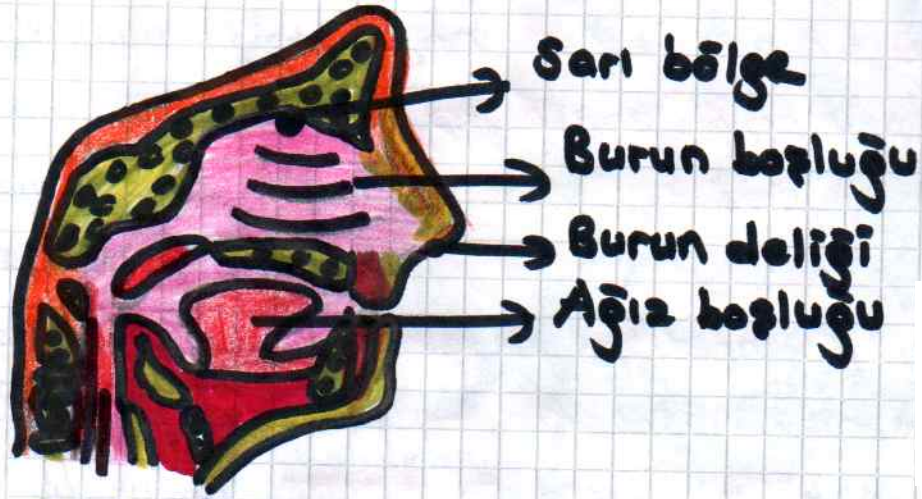 Sarı bölge
Burun boşluğu
Burun deliği
Ağız boşluğu